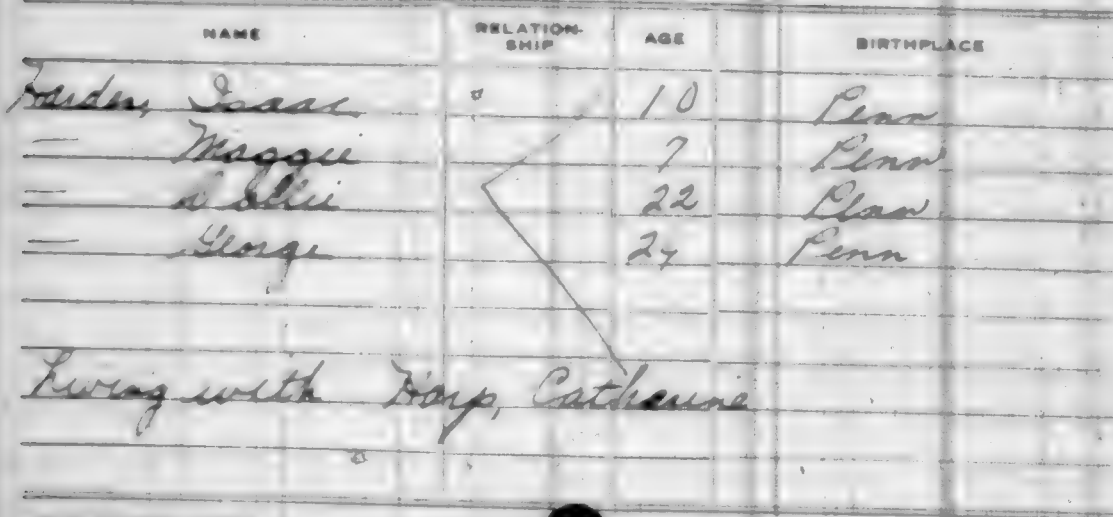 NAME RELATION-SHIP AGE BIRTHPLACE
Harden, Isaac 10 Penn
— Maggie 7 Penn
— 22 Penn
— George 27 Penn
Living with Harp, Catharine